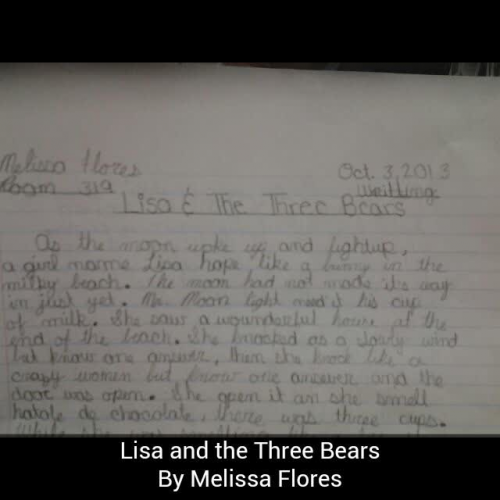 Melissa Flores Oct. 3, 2013
Room 319 Weitting
Lisa & The Three Bears
As the moon woke up and lightup,
a girl name Lisa hope like a bunny in the
milky beach. The moon had not made it's way
in just yet. Mr. Moon light need it his cup
of milk. She saw a wounderful house at the
end of the beach. She knocked as a slowly wind
but know one answer, then she knock like a
crazy women but know one answer and the
door was open. She open it an she smell
hatole de chocolate, there was three cups.
Lisa and the Three Bears
By Melissa Flores